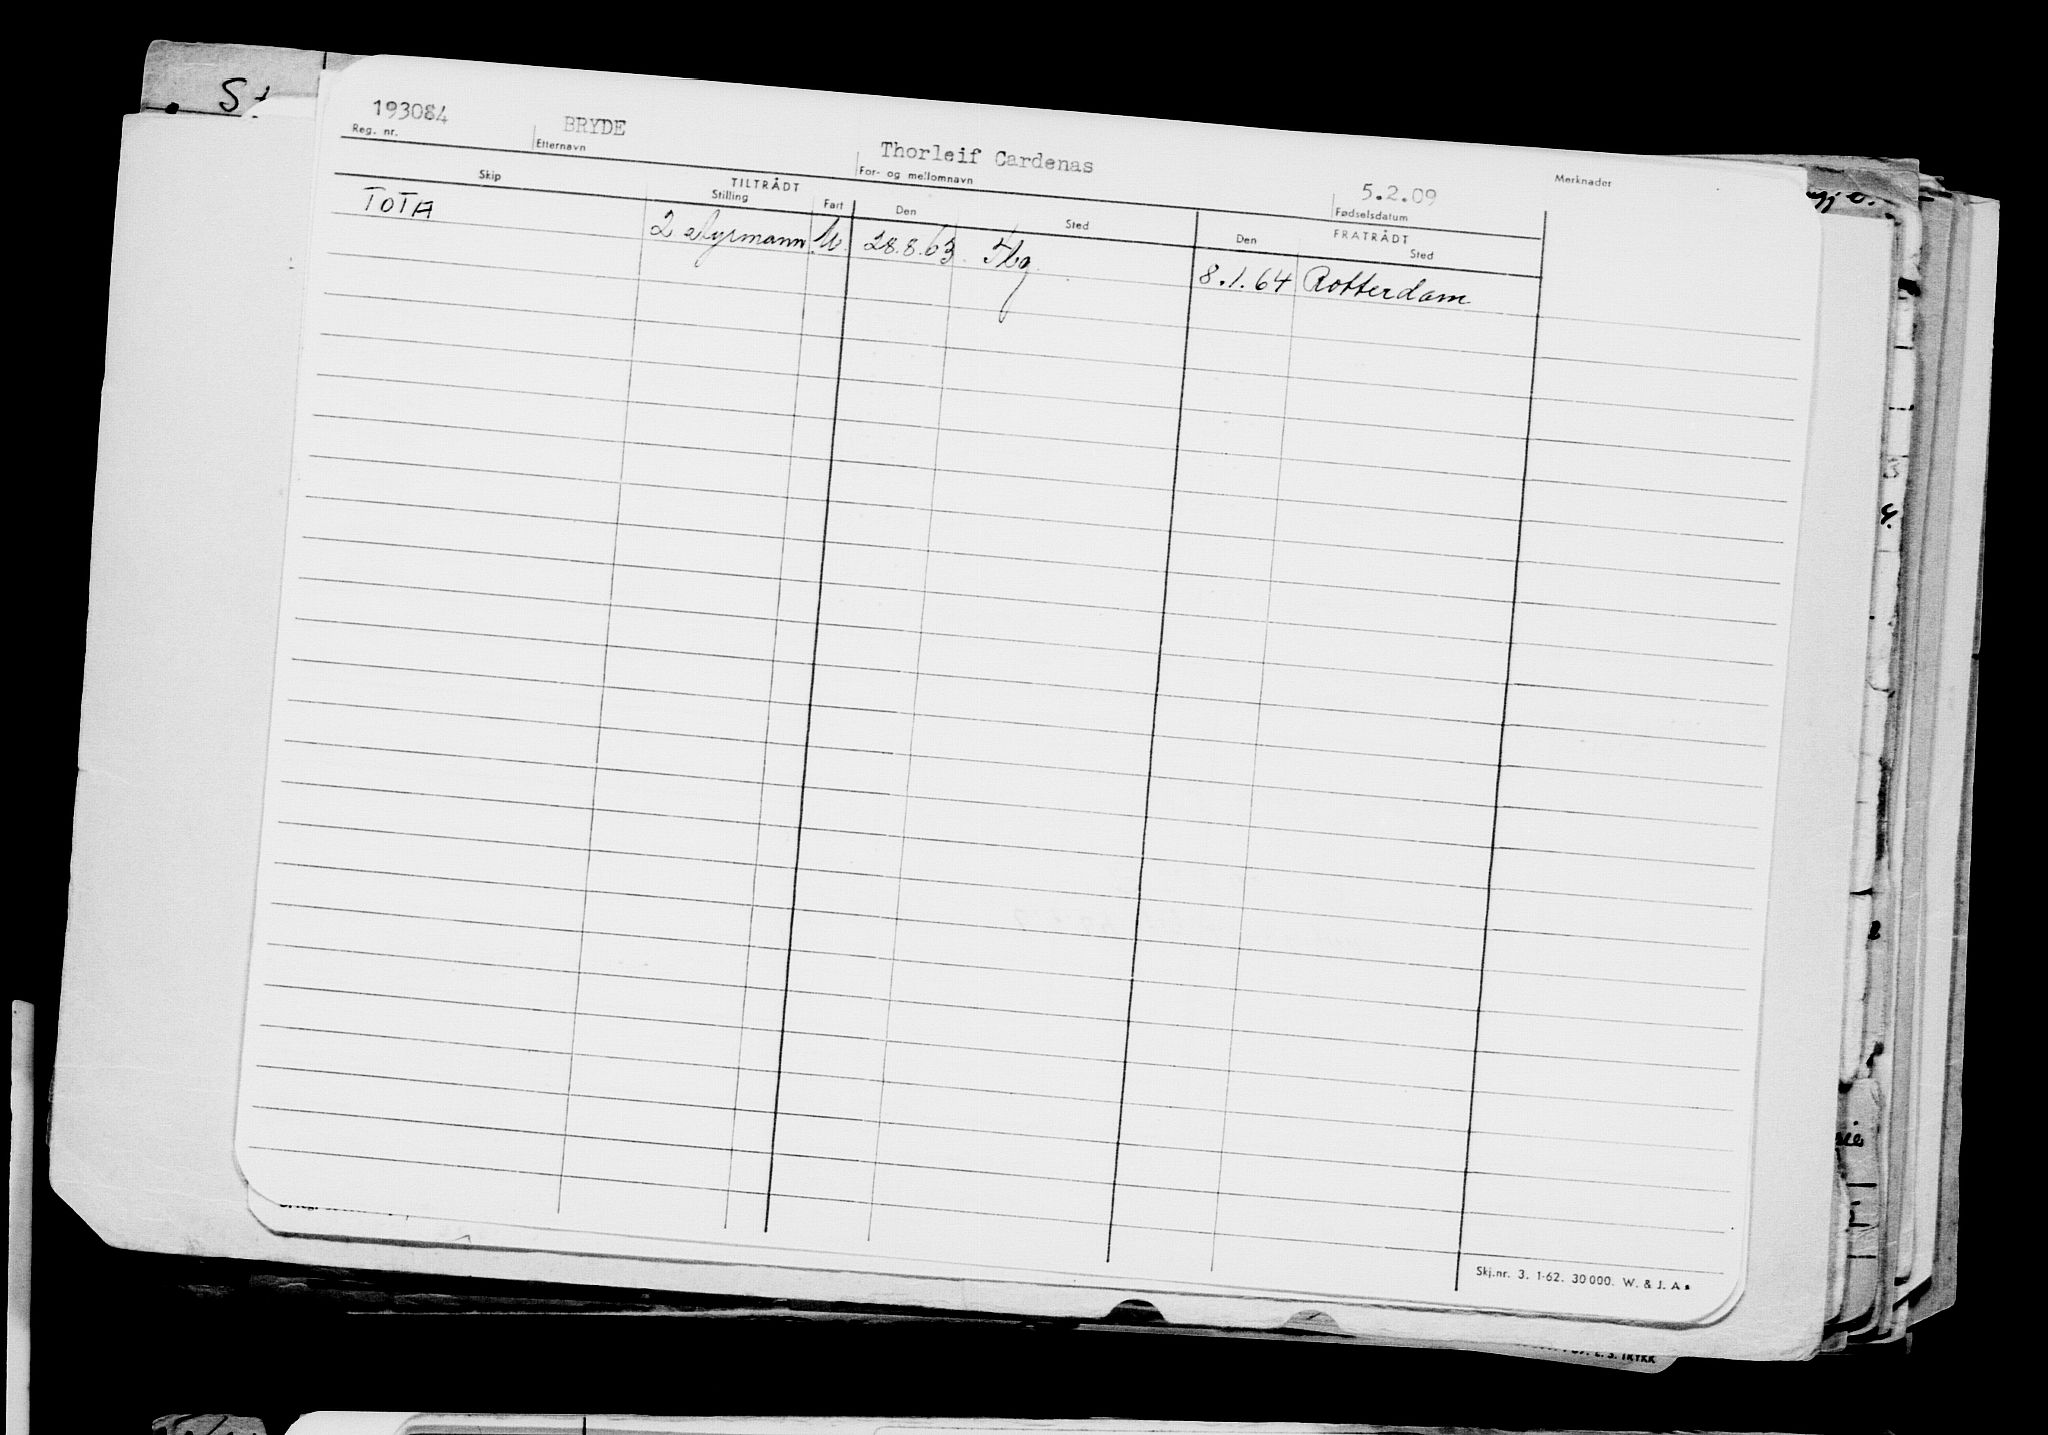 193084 BRYDE Thorleif Cardenas 5.2.09
Reg. nr. Etternavn For- og mellomnavn Fødselsdatum Merknader
TILTRÅDT FRATRÅDT
Skip Stilling Fart Den Sted Den Sted
TOTA 2 styrmann U. 28.8.63 Hbg. 8.1.64 Rotterdam
Skj.nr. 3. 1-62. 30 000. W. & J. A.